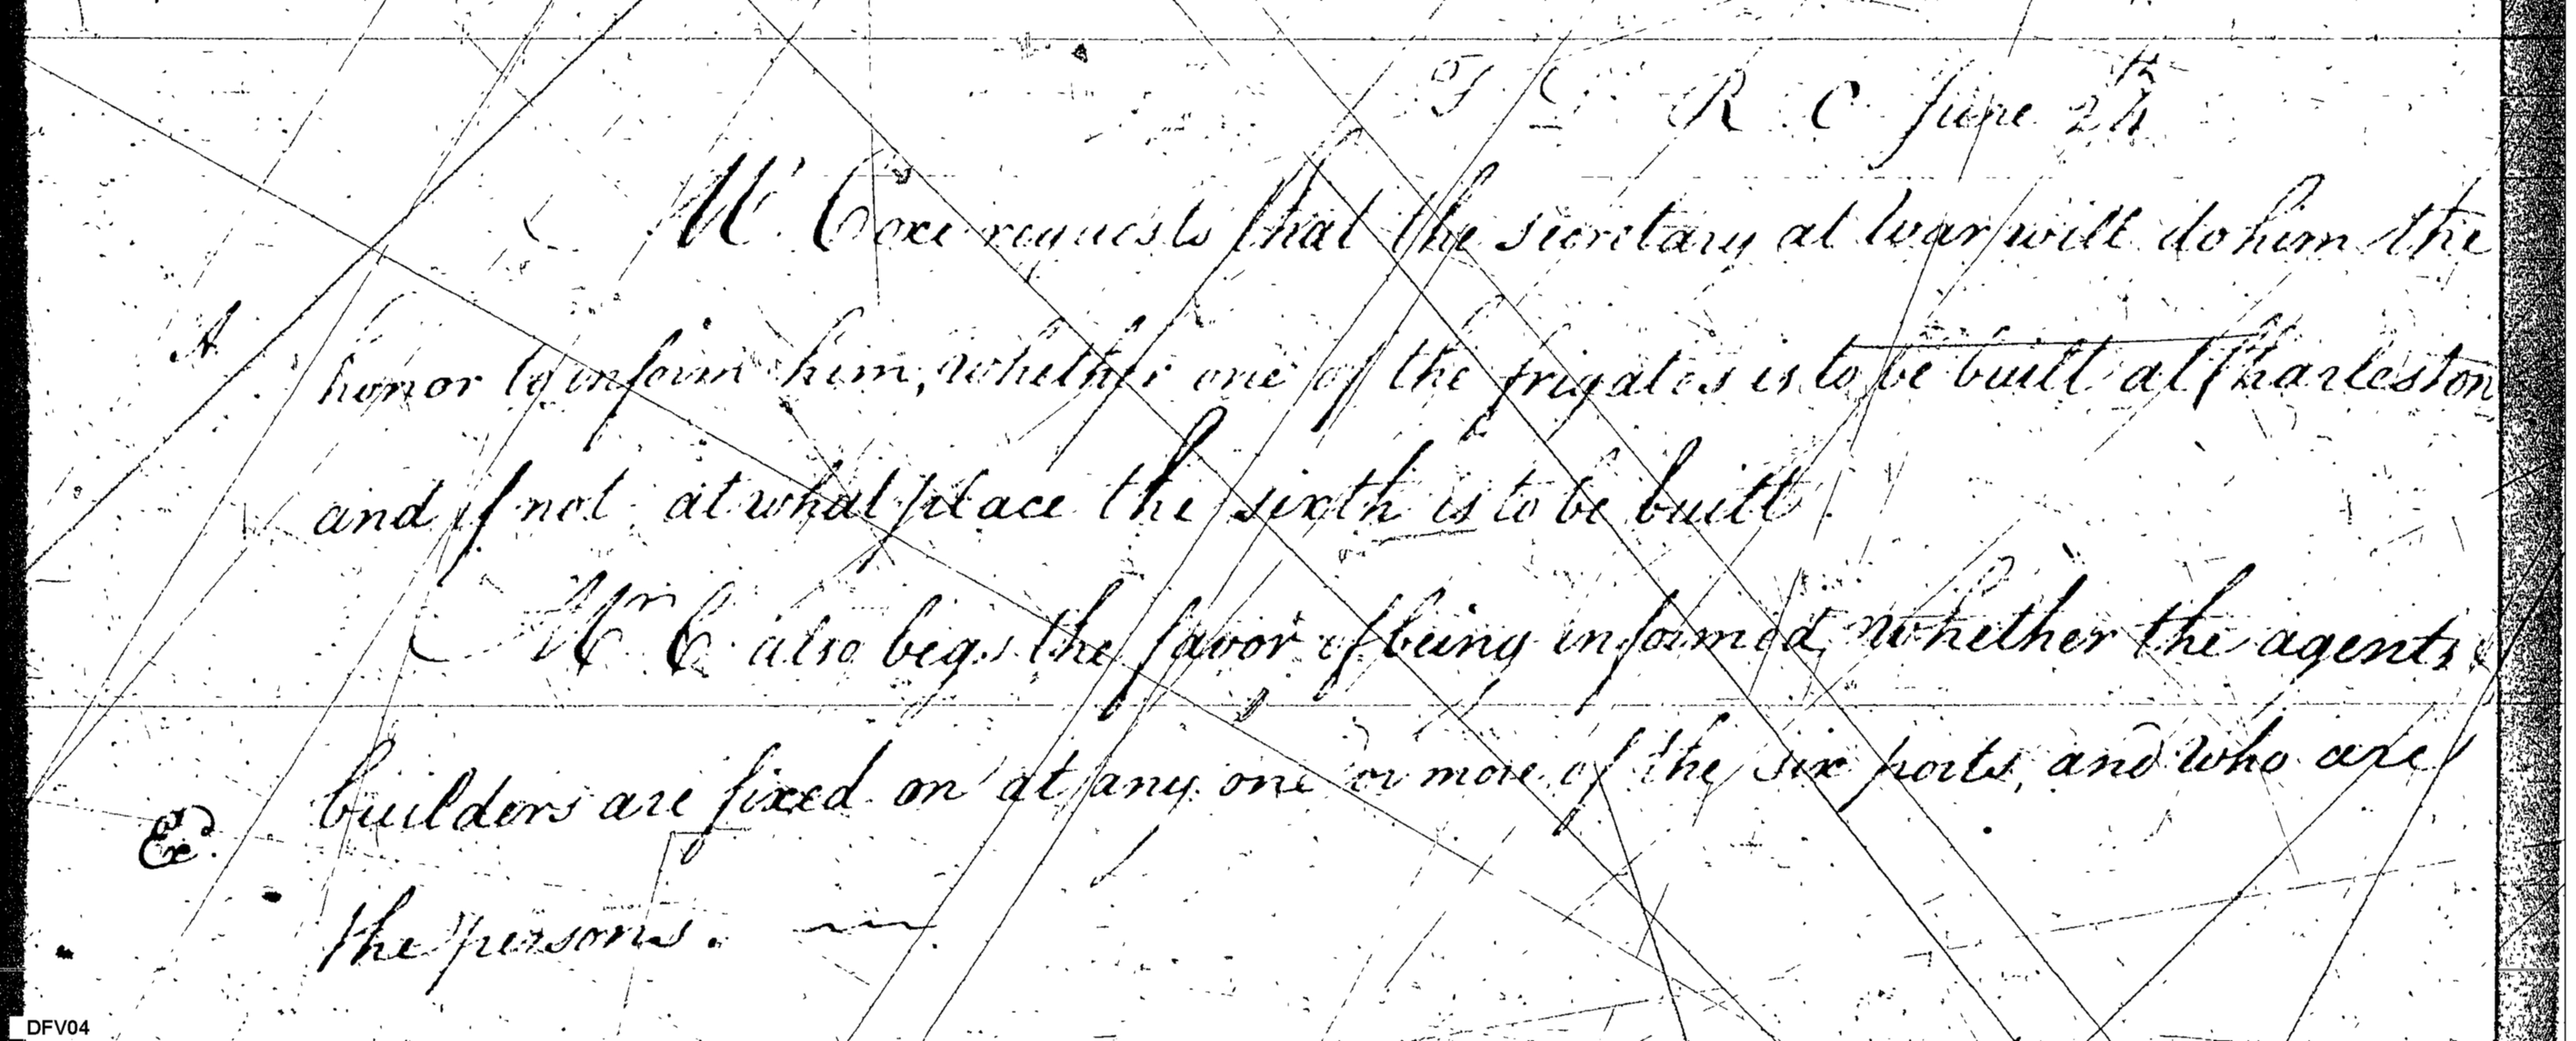 T D R O June 24th
Mr Coxe requests that the secretary at War will do him the
A
honor to inform him, whether one of the frigates is to be built at Charleston
and if not at what place the sixth is to be built.
Mr C. also begs the favor of being informed, whether the agents &
builders are fixed on at any one or more of the six ports, and who are
Exd.
the persons.
DFV04